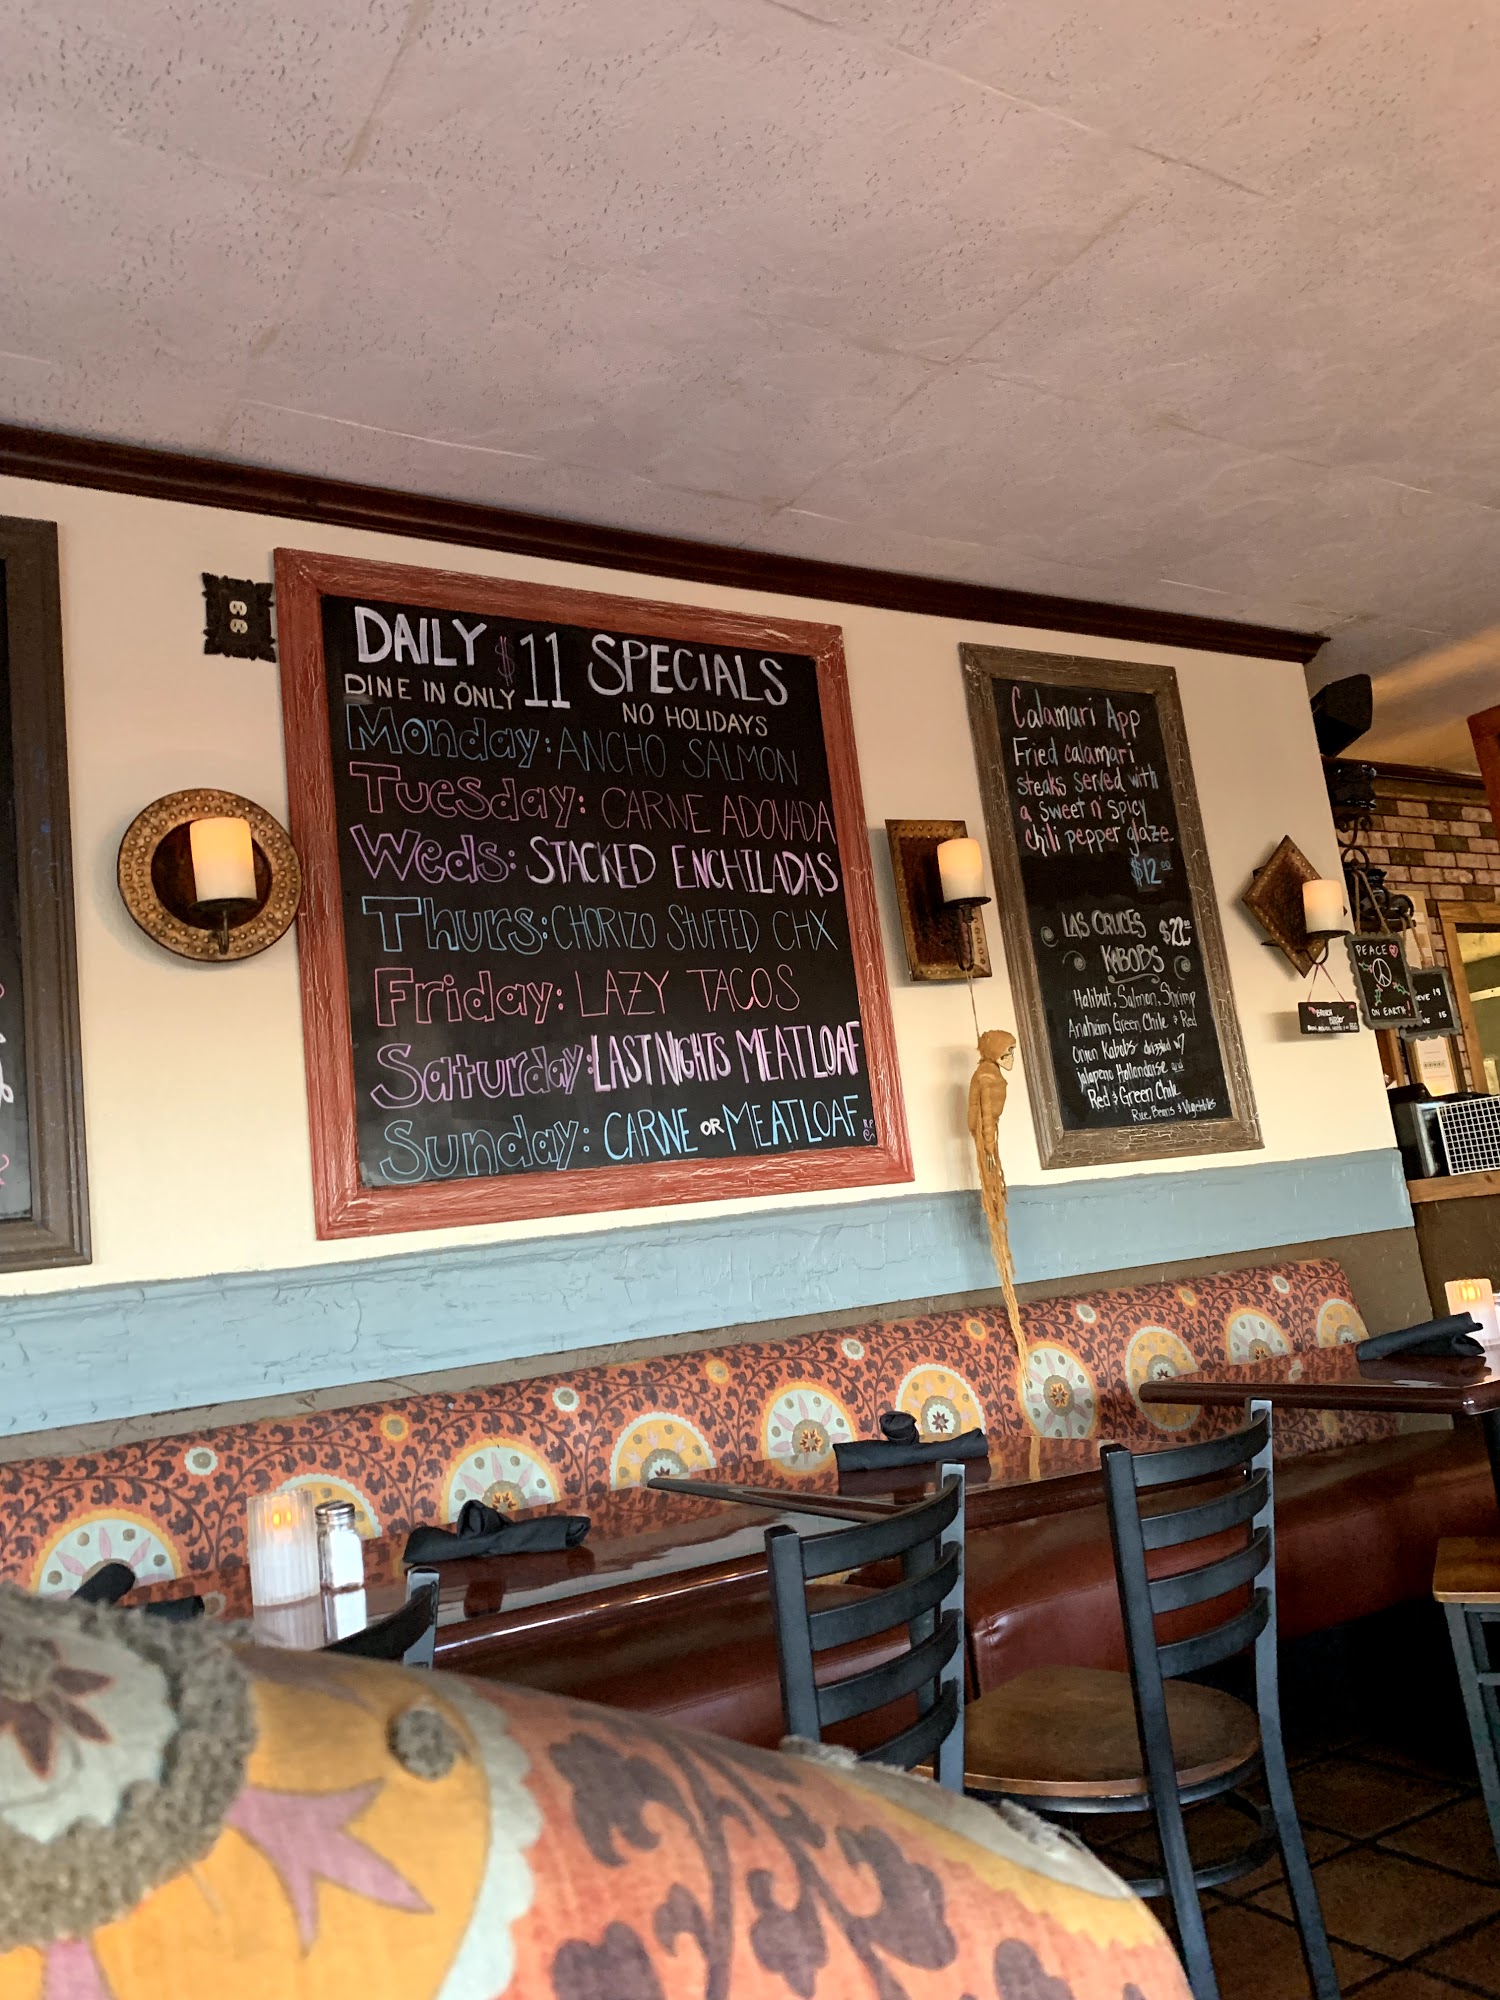 DAILY $11 SPECIALS
DINE IN ONLY
NO HOLIDAYS
Monday: ANCHO SALMON
Tuesday: CARNE ADOVADA
Weds: STACKED ENCHILADAS
Thurs: CHORIZO STUFFED CHX
Friday: LAZY TACOS
Saturday: LAST NIGHTS MEATLOAF
Sunday: CARNE OR MEATLOAF
Calamari App
Fried calamari
steaks served with
a sweet n' spicy
chili pepper glaze.
$12.00
LAS CRUCES $22.00
KABOBS
Halibut, Salmon, Shrimp
Anaheim Green Chile & Red
Onion Kabobs drizzled w/
jalapeno Hollandaise and
Red & Green Chile
Rice, Beans & Vegetables
PEACE
ON EARTH!
66